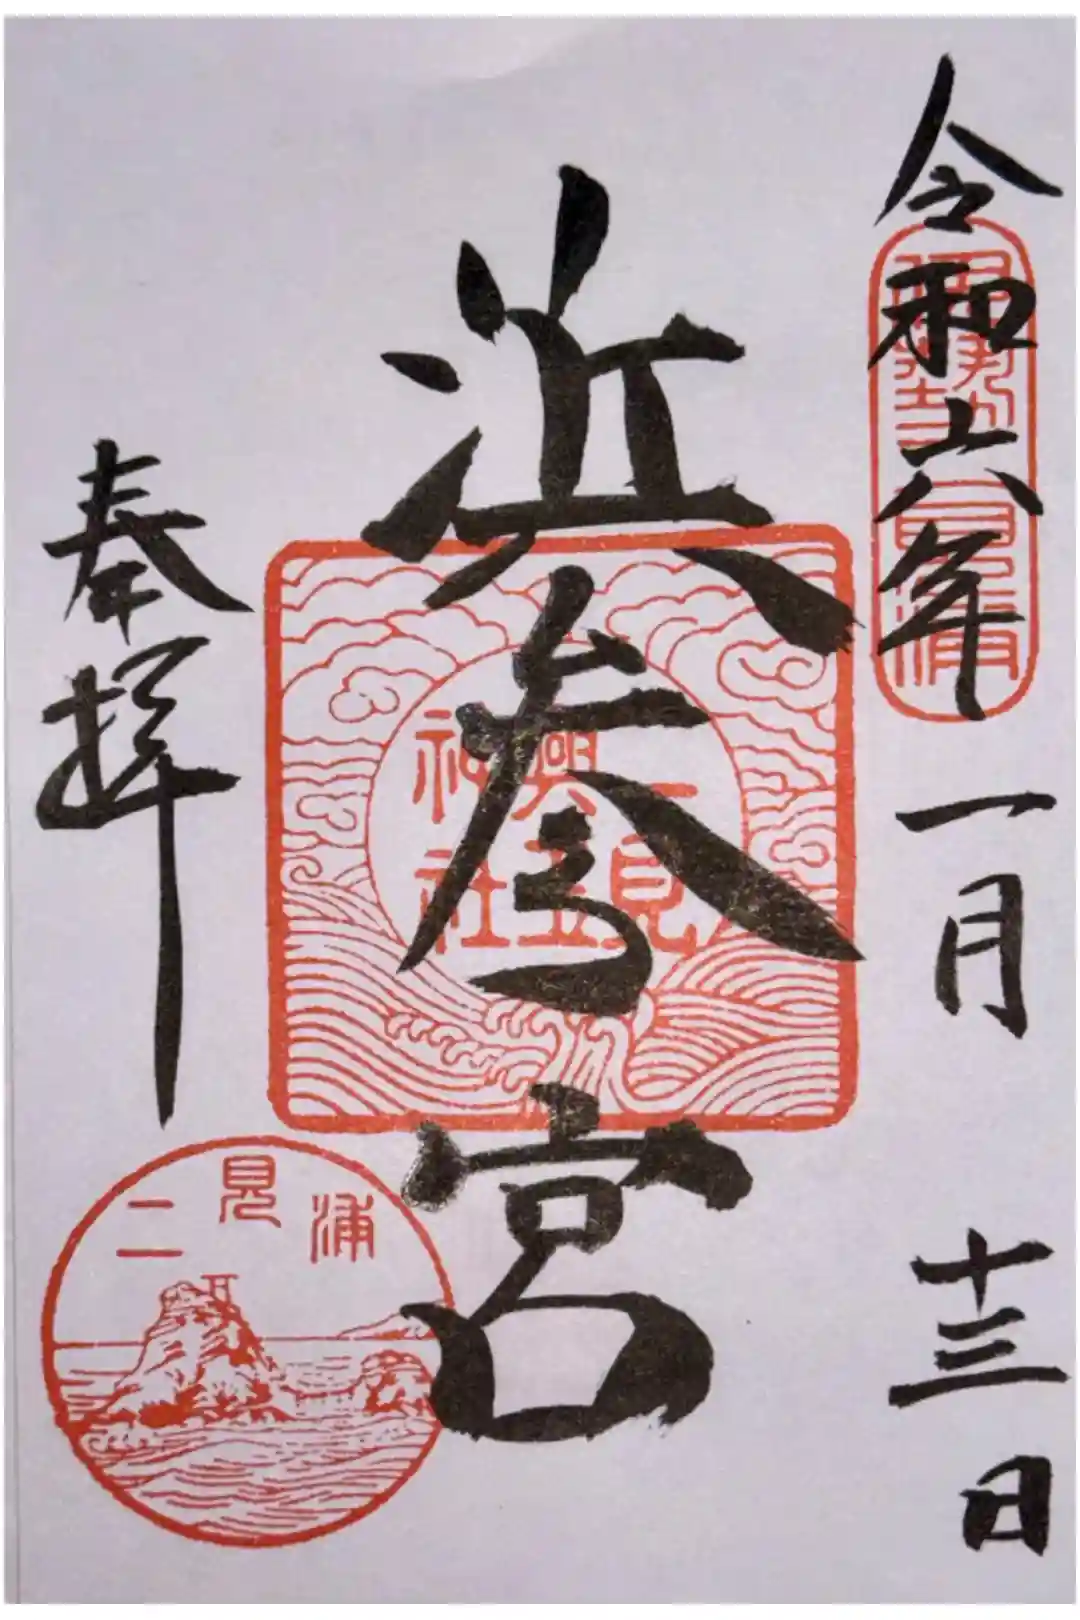 令和六年 一月 十三日
伊勢二見浦
浜参宮
二見
興玉
神社
奉拝
二見浦